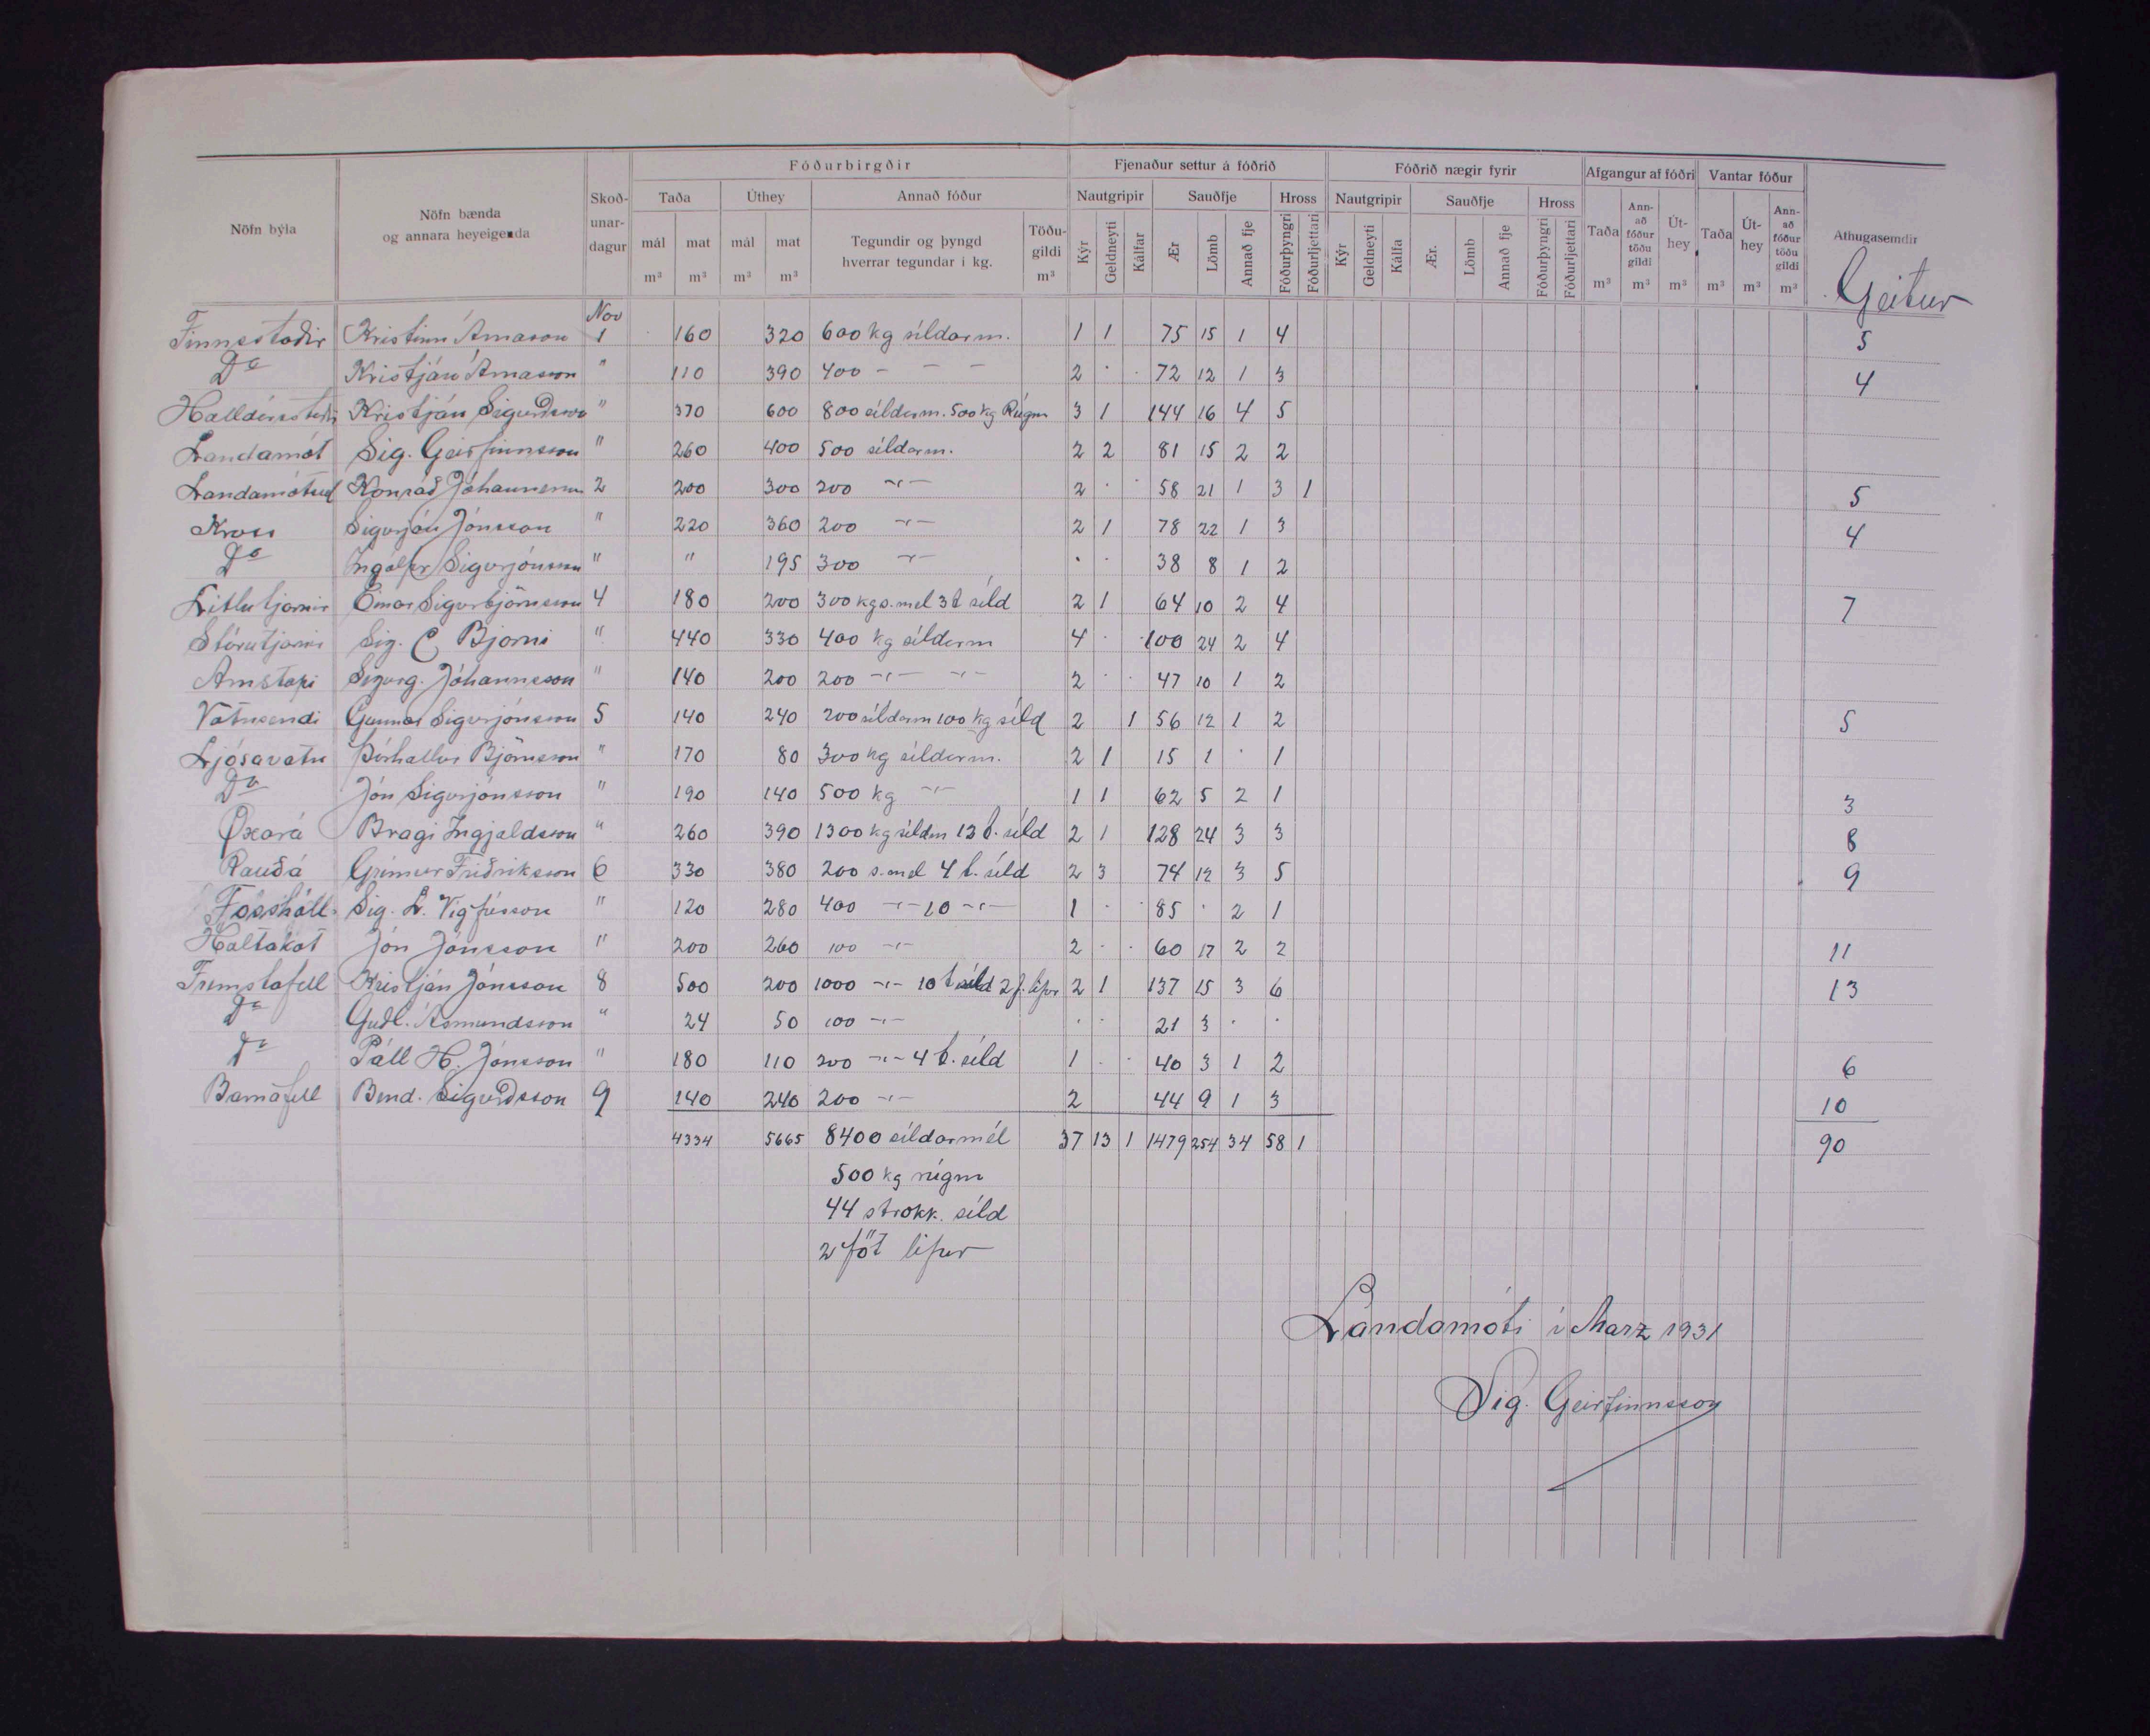 Fóðurbirgðir Fjenaður settur á fóðrið Fóðrið nægir fyrir Afgangur af fóðri Vantar fóður
Nöfn býla Nöfn bænda og annara heyeigenda Skoðunardagur Taða Úthey Annað fóður Nautgripir Sauðfje Hross Nautgripir Sauðfje Hross Athugasemdir
mál m³ mat m³ mál m³ mat m³ Tegundir og þyngd hverrar tegundar í kg. Töðugildi m³ Kýr Geldneyti Kálfar Ær Lömb Annað fje Fóðurþyngri Fóðurljettari Kýr Geldneyti Kálfa Ær. Lömb Annað fje Fóðurþyngri Fóðurljettari Taða m³ Annað fóður töðu gildi m³ Úthey m³ Taða m³ Úthey m³ Annað fóður töðu gildi m³ Geitur
Nov
Finnsstaðir Kristinn Árnason 1 160 320 600 kg síldarm. 1 1 75 15 1 4 5
Do Kristján Árnason " 110 390 400 - - - 2 · · 72 12 1 3 4
Kristján Sigurdsson " 370 600 800 síldarm. 500 kg Rúgm 3 1 144 16 4 5
Landamót Sig. Geirfinnsson " 260 400 500 síldarm. 2 2 81 15 2 2
Konráð Jóhannsson 2 200 300 200 -"- 2 · · 58 21 1 3 1 5
Kross Sigurjón Jónsson " 220 360 200 -"- 2 1 78 22 1 3 4
Do Ingólfur Sigurjónsson " " 195 300 -"- · · 38 8 1 2
Litlutjarnir Sigurbjörnsson 4 180 200 300 kg s.mel 3 t síld 2 1 64 10 2 4 7
Stórutjarnir Sig. Bjarni " 440 330 400 kg síldarm 4 · · 100 24 2 4
Arnstapi Sigurg. Jóhannesson " 140 200 200 -"- -"- 2 · · 47 10 1 2
Vatnsendi Gunnar Sigurjónsson 5 140 240 200 síldarm 100 kg síld 2 1 56 12 1 2 5
Ljósavatn Þórhallur Björnsson " 170 80 300 kg síldarm. 2 1 15 1 · 1
Do Jón Sigurjónsson " 190 140 500 kg -"- 1 1 62 5 2 1 3
Öxará Bragi Ingjaldsson " 260 390 1300 kg síldm 13 t. síld 2 1 128 24 3 3 8
Rauðá Grímur Friðriksson 6 330 380 200 s.mel 4 t. síld 2 3 74 12 3 5 9
Fosshóll Sig. L. Vigfússon " 120 280 400 -"- 10 -"- 1 · · 85 · 2 1
Holtakot Jón Jónsson " 200 260 100 -"- 2 · · 60 17 2 2 11
Fremstafell Kristján Jónsson 8 500 200 1000 -"- 10 t síld 2 f. lifur 2 1 137 15 3 6 13
Do Guðl. Ásmundsson " 24 50 100 -"- · · 21 3 · ·
Do Páll H. Jónsson " 180 110 200 -"- 4 t. síld 1 · · 40 3 1 2 6
Barnafell Bend. Sigurdsson 9 140 240 200 -"- 2 44 9 1 3 10
4334 5665 8400 síldarmél 37 13 1 1479 254 34 58 1 90
500 kg rúgm
44 strokk. síld
2 föt lifur
Landamóti í Marz 1931
Sig. Geirfinnsson